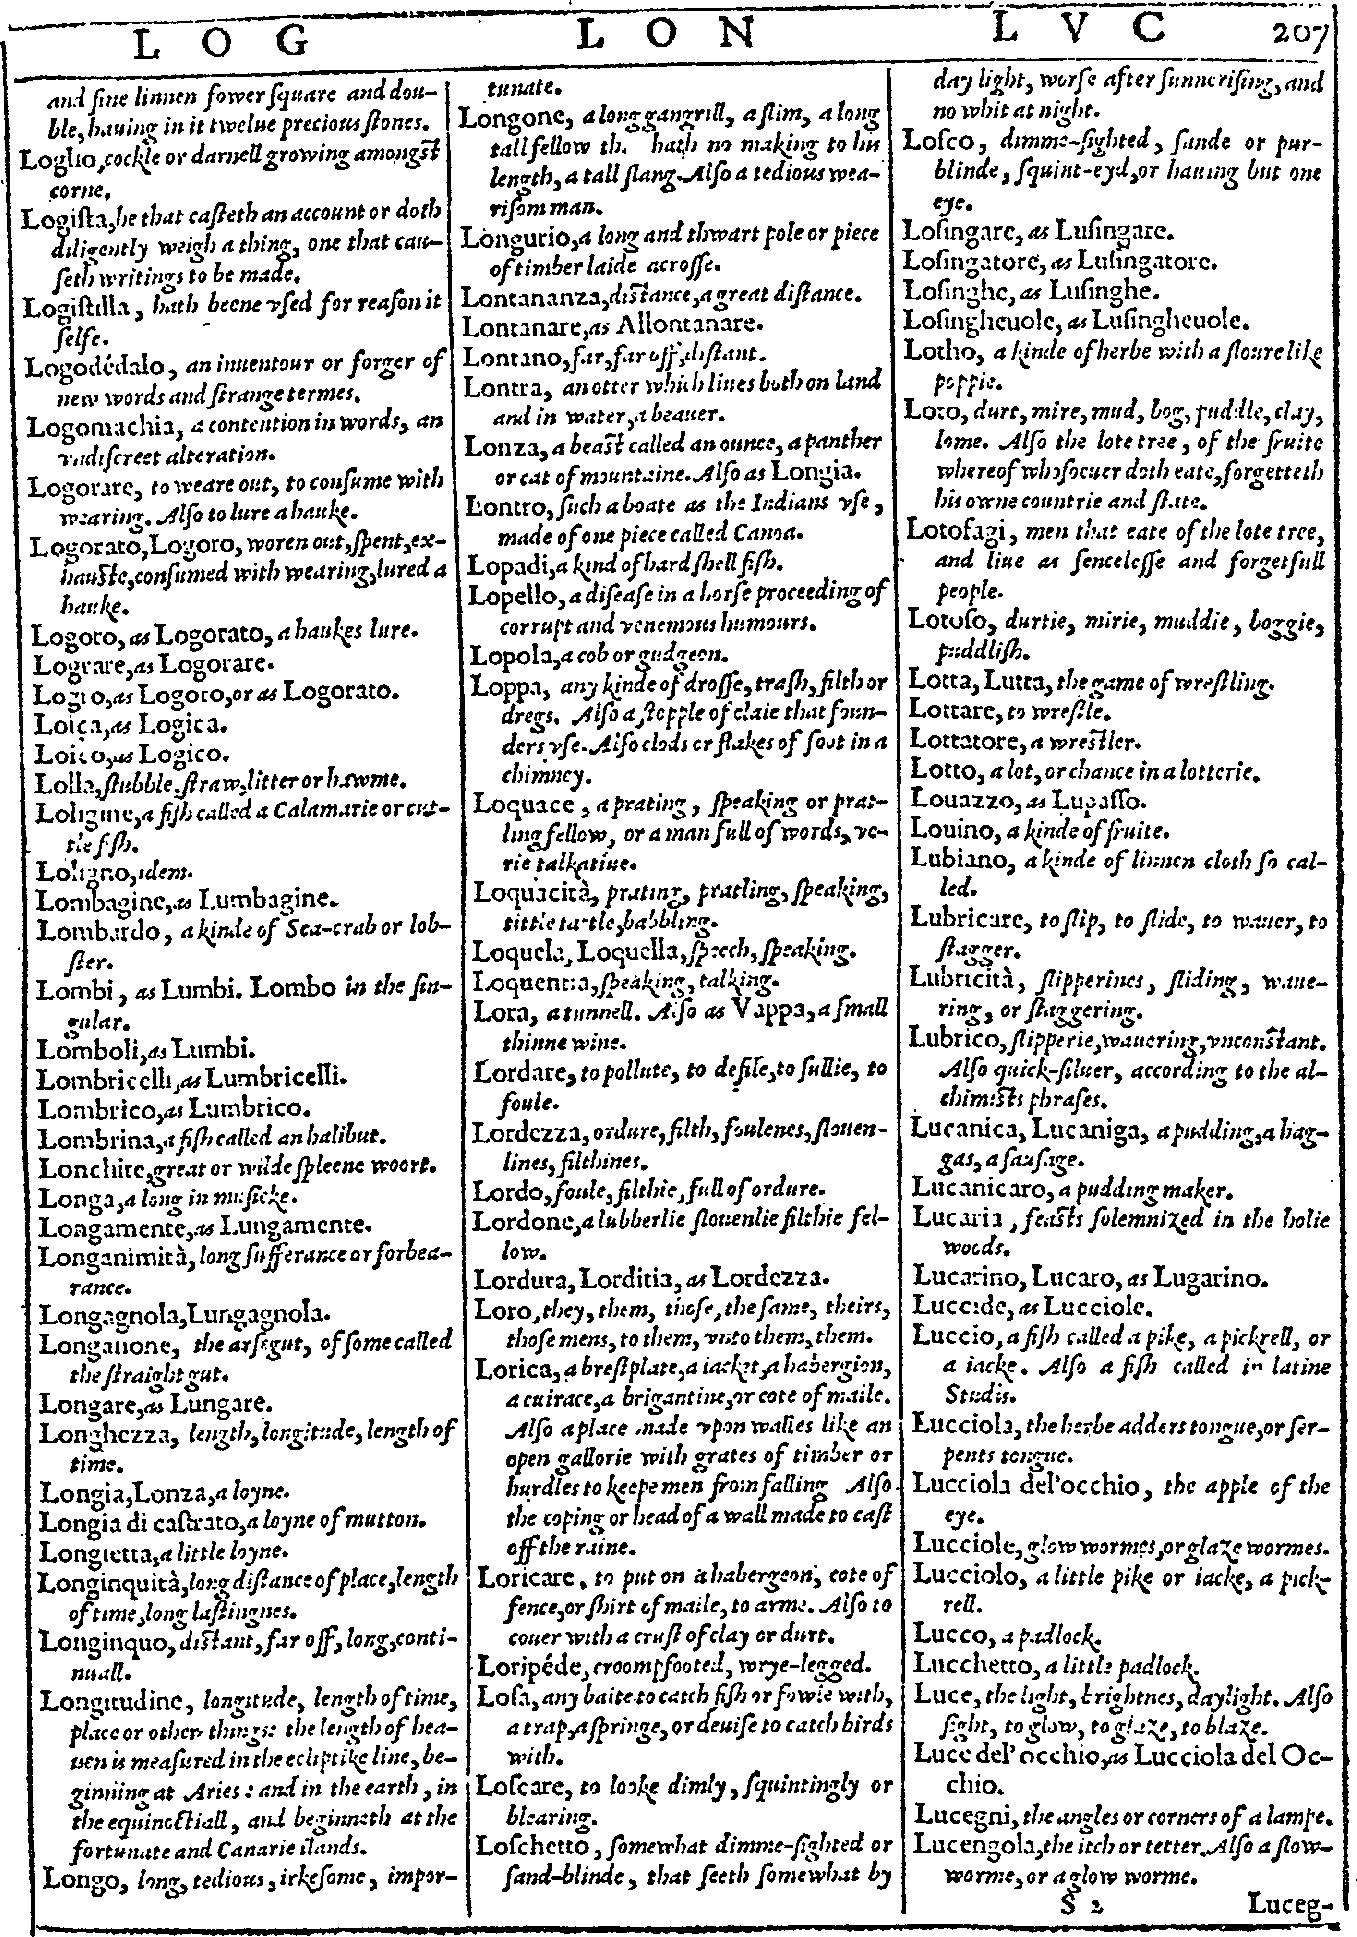 LOG LON LVC 207
and fine linnen fower square and dou-
ble, hauing in it twelue precious stones.
Loglio, cockle or darnell growing amongst
corne.
Logista, he that casteth an account or doth
diligently weigh a thing, one that cau-
seth writings to be made.
Logistilla, hath beene vsed for reason it
selfe.
Logodédalo, an inuentour or forger of
new words and strange termes.
Logomachia, a contention in words, an
vndiscreet alteration.
Logorare, to weare out, to consume with
wearing. Also to lure a hauke.
Logorato, Logoro, woren out, spent, ex-
hauste, consumed with wearing, lured a
hauke.
Logoro, as Logorato, a haukes lure.
Lograre, as Logorare.
Logro, as Logoro, or as Logorato.
Loica, as Logica.
Loico, as Logico.
Lolla, stubble, straw, litter or hawme.
Loligine, a fish called a Calamarie or cut-
tlefish.
Loligno, idem.
Lombagine, as Lumbagine.
Lombardo, a kinde of Sea-crab or lob-
ster.
Lombi, as Lumbi. Lombo in the sin-
gular.
Lomboli, as Lumbi.
Lombricelli, as Lumbricelli.
Lombrico, as Lumbrico.
Lombrina, a fish called an halibut.
Lonchite, great or wilde spleene woort.
Longa, a long in musicke.
Longamente, as Lungamente.
Longanimità, long sufferance or forbea-
rance.
Longagnola, Lungagnola.
Longanone, the arsegut, of some called
the straight gut.
Longare, as Lungare.
Longhezza, length, longitude, length of
time.
Longia, Lonza, a loyne.
Longia di castrato, a loyne of mutton.
Longietta, a little loyne.
Longinquità, long distance of place, length
of time, long lastingnes.
Longinquo, distant, far off, long, conti-
nuall.
Longitudine, longitude, length of time,
place or other things: the length of hea-
uen is measured in the ecliptike line, be-
ginning at Aries: and in the earth, in
the equinoctiall, and beginneth at the
fortunate and Canarie ilands.
Longo, long, tedious, irkesome, impor-
tunate.
Longone, a long gangrill, a slim, a long
tall fellow th. hath no making to his
length, a tall slang. Also a tedious wea-
risom man.
Longurio, a long and thwart pole or piece
of timber laide acrosse.
Lontananza, distance, a great distance.
Lontanare, as Allontanare.
Lontano, far, far off, distant.
Lontra, an otter which liues both on land
and in water, a beauer.
Lonza, a beast called an ounce, a panther
or cat of mountaine. Also as Longia.
Lontro, such a boate as the Indians vse,
made of one piece called Canoa.
Lopadi, a kind of hard shell fish.
Lopello, a disease in a horse proceeding of
corrupt and venemous humours.
Lopola, a cob or gudgeon.
Loppa, any kinde of drosse, trash, filth or
dregs. Also a stopple of claie that foun-
ders vse. Also clods or flakes of soot in a
chimney.
Loquace, a prating, speaking or prat-
ling fellow, or a man full of words, ve-
rie talkatiue.
Loquacità, prating, pratling, speaking,
tittle tattle, babbling.
Loquela, Loquella, speech, speaking.
Loquentia, speaking, talking.
Lora, a tunnell. Also as Vappa, a small
thinne wine.
Lordare, to pollute, to defile, to sullie, to
foule.
Lordezza, ordure, filth, foulenes, slouen-
lines, filthines.
Lordo, foule, filthie, full of ordure.
Lordone, a lubberlie slouenlie filthie fel-
low.
Lordura, Lorditia, as Lordezza.
Loro, they, them, those, the same, theirs,
those mens, to them, vnto them, them.
Lorica, a brestplate, a iacket, a habergion,
a cuirace, a brigantine, or cote of maile.
Also a place made vpon walles like an
open gallorie with grates of timber or
hurdles to keepe men from falling Also
the coping or head of a wall made to cast
off the raine.
Loricare, to put on a habergeon, cote of
fence, or shirt of maile, to arme. Also to
couer with a crust of clay or durt.
Loripéde, croompfooted, wrye-legged.
Losa, any baite to catch fish or fowle with,
a trap, a springe, or deuise to catch birds
with.
Loscare, to looke dimly, squintingly or
blearing.
Loschetto, somewhat dimme-sighted or
sand-blinde, that seeth somewhat by
day light, worse after sunne rising, and
no whit at night.
Losco, dimme-sighted, sande or pur-
blinde, squint-eyd, or hauing but one
eye.
Losingare, as Lusingare.
Losingatore, as Lusingatore.
Losinghe, as Lusinghe.
Losingheuole, as Lusingheuole.
Lotho, a kinde of herbe with a floure like
poppie.
Loto, durt, mire, mud, bog, puddle, clay,
lome. Also the lote tree, of the fruite
whereof whosoeuer doth eate, forgetteth
his owne countrie and state.
Lotofagi, men that eate of the lote tree,
and liue as sencelesse and forgetfull
people.
Lotoso, durtie, mirie, muddie, boggie,
puddlish.
Lotta, Lutta, the game of wrestling.
Lottare, to wrestle.
Lottatore, a wrestler.
Lotto, a lot, or chance in a lotterie.
Louazzo, as Lupasso.
Louino, a kinde of fruite.
Lubiano, a kinde of linnen cloth so cal-
led.
Lubricare, to slip, to slide, to wauer, to
stagger.
Lubricità, slipperines, sliding, waue-
ring, or staggering.
Lubrico, slipperie, wauering, vnconstant.
Also quick-siluer, according to the al-
chimists phrases.
Lucanica, Lucaniga, a pudding, a hag-
gas, a sausage.
Lucanicaro, a pudding maker.
Lucaria, feasts solemnized in the holie
woods.
Lucarino, Lucaro, as Lugarino.
Luccide, as Lucciole.
Luccio, a fish called a pike, a pickrell, or
a iacke. Also a fish called in latine
Studis.
Lucciola, the herbe adders tongue, or ser-
pents tongue.
Lucciola del'occhio, the apple of the
eye.
Lucciole, glow wormes, or glaze wormes.
Lucciolo, a little pike or iacke, a pick-
rell.
Lucco, a padlock.
Lucchetto, a little padlock.
Luce, the light, brightnes, daylight. Also
sight, to glow, to glaze, to blaze.
Luce del' occhio, as Lucciola del Oc-
chio.
Lucegni, the angles or corners of a lampe.
Lucengola, the itch or tetter. Also a slow-
worme, or a glow worme.
S 2 Luceg-